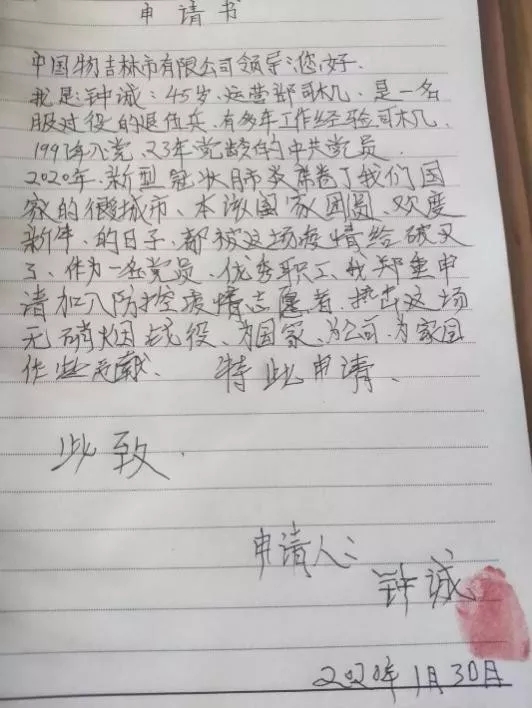 申请书
中国物吉林市有限公司领导:您好.
我是:钟诚:45岁、运营部司机、是一名
服过役的退伍兵.有多年工作经验司机.
1997年入党、23年党龄的中共党员.
2020年、新型冠状肺炎席卷了我们国
家的很城市、本该阖家团圆、欢度
新年、的日子、都被这场疫情给破灭
了、作为一名党员、优秀职工、我郑重申
请加入防控疫情志愿者.抗击这场
无硝烟战役、为国家、为公司、为家园
作些贡献、 特此申请、
此致.
申请人:
钟诚
2020年1月30日